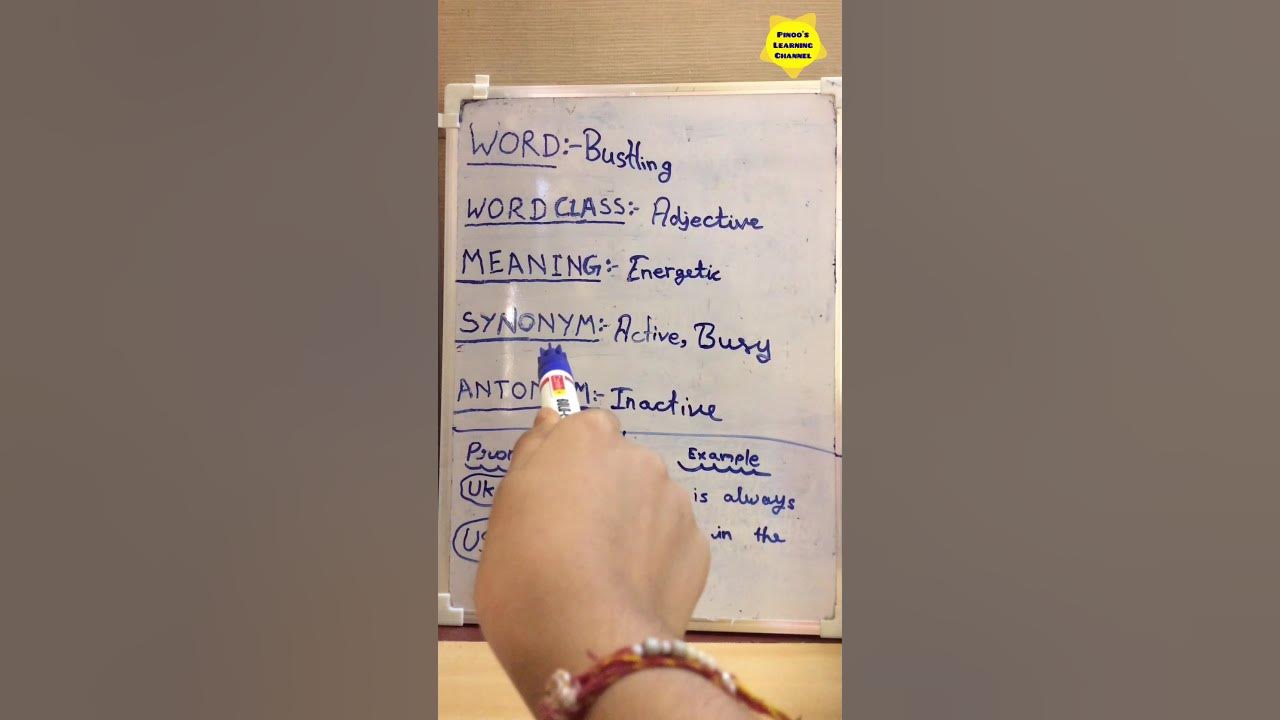 Pinoo's
Learning
Channel
WORD:- Bustling
WORD CLASS:- Adjective
MEANING:- Energetic
SYNONYM:- Active, Busy
:- Inactive
Example
UK is always
in the